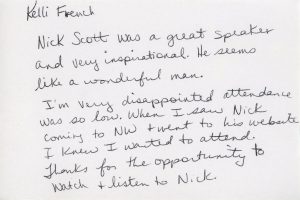 Kelli French
Nick Scott was a great speaker
and very inspirational. He seems
like a wonderful man.
I'm very disappointed attendance
was so low. When I saw Nick
coming to NW + went to his website
I knew I wanted to attend.
Thanks for the opportunity to
watch + listen to Nick.